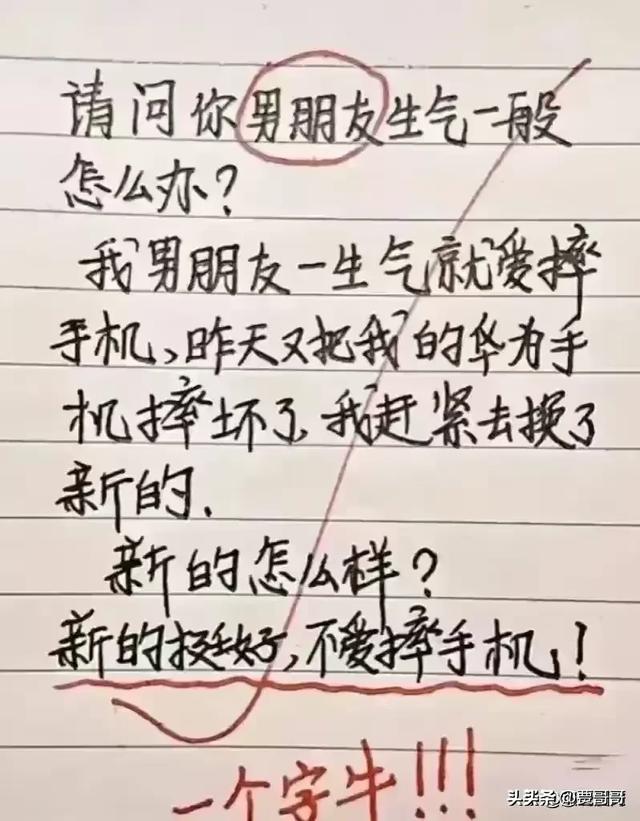 请问你男朋友生气一般
怎么办？
我男朋友一生气就爱摔
手机、昨天又把我的华为手
机摔坏了，我赶紧去换了
新的.
新的怎么样？
新的挺好，不爱摔手机！
一个字牛！！！
头条@贾哥哥